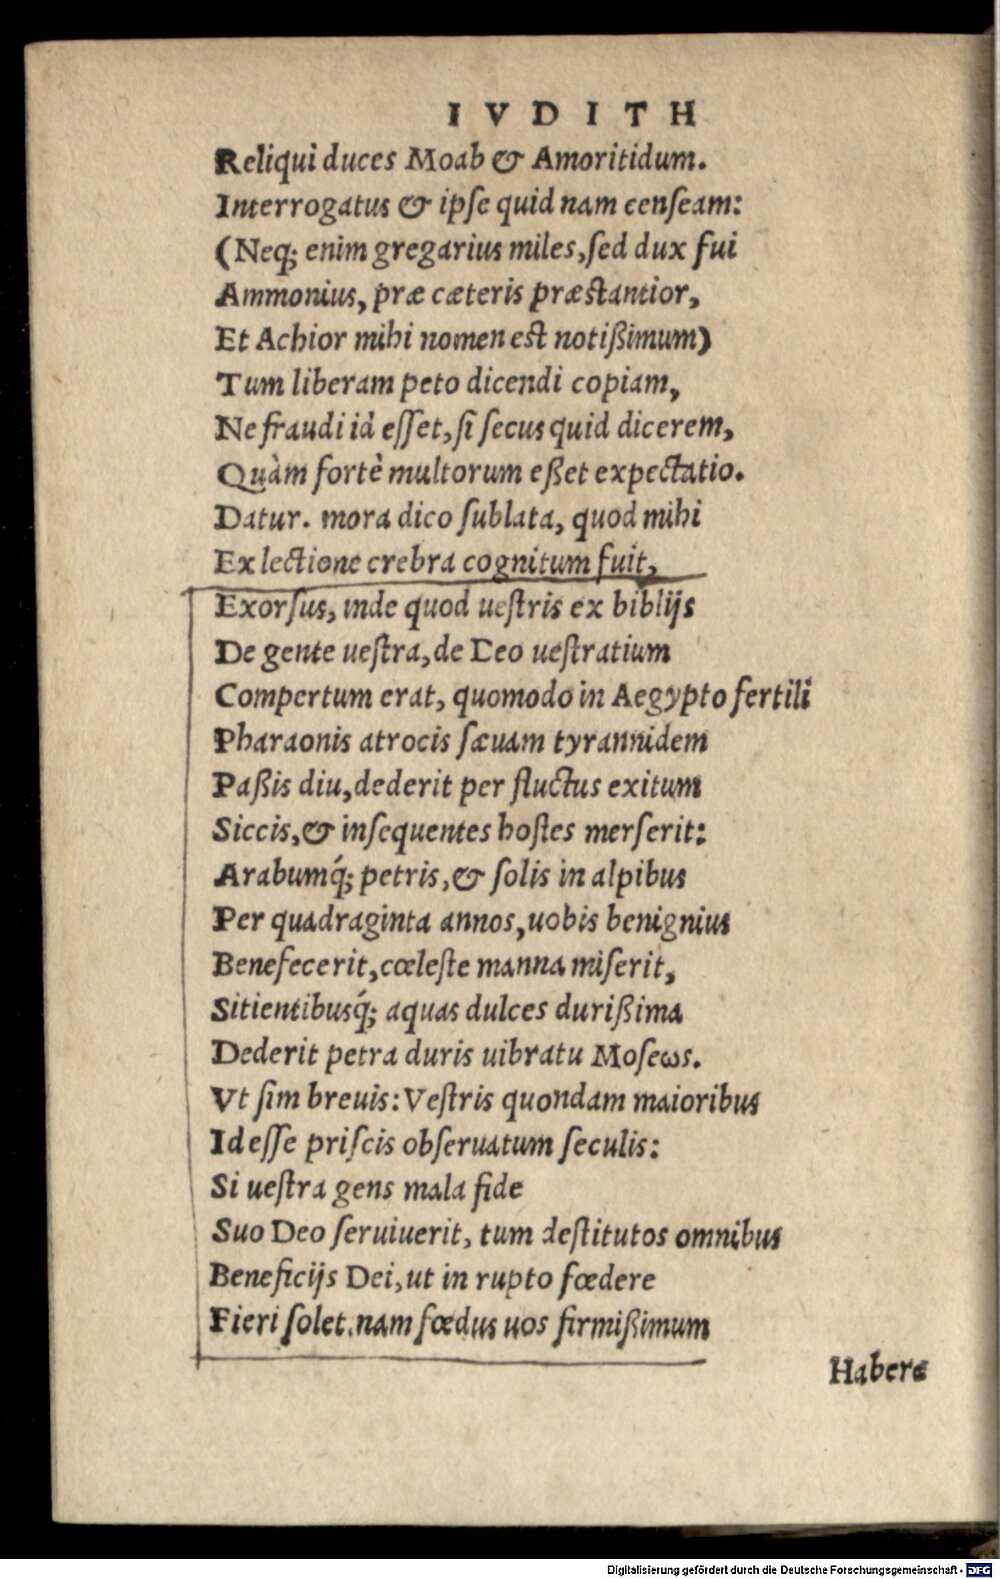 IVDITH
Reliqui duces Moab & Amoritidum.
Interrogatus & ipſe quid nam cenſeam:
(Neq; enim gregarius miles, ſed dux fui
Ammonius, præ cæteris præſtantior,
Et Achior mihi nomen eſt notißimum)
Tum liberam peto dicendi copiam,
Ne fraudi id eſſet, ſi ſecus quid dicerem,
Quàm fortè multorum eßet expectatio.
Datur. mora dico ſublata, quod mihi
Ex lectione crebra cognitum fuit,
Exorſus, inde quod ueſtris ex biblijs
De gente ueſtra, de Deo ueſtratium
Compertum erat, quomodo in Aegypto fertili
Pharaonis atrocis ſæuam tyrannidem
Paßis diu, dederit per fluctus exitum
Siccis, & inſequentes hoſtes merſerit:
Arabumq́; petris, & ſolis in alpibus
Per quadraginta annos, uobis benignius
Benefecerit, cœleſte manna miſerit,
Sitientibusq́; aquas dulces durißima
Dederit petra duris uibratu Moſeωs.
Vt ſim breuis: Veſtris quondam maioribus
Id eſſe priſcis obſeruatum ſeculis:
Si ueſtra gens mala fide
Suo Deo ſeruiuerit, tum deſtitutos omnibus
Beneficijs Dei, ut in rupto fœdere
Fieri ſolet. nam fœdus uos firmißimum
Habere
Digitalisierung gefördert durch die Deutsche Forschungsgemeinschaft - DFG